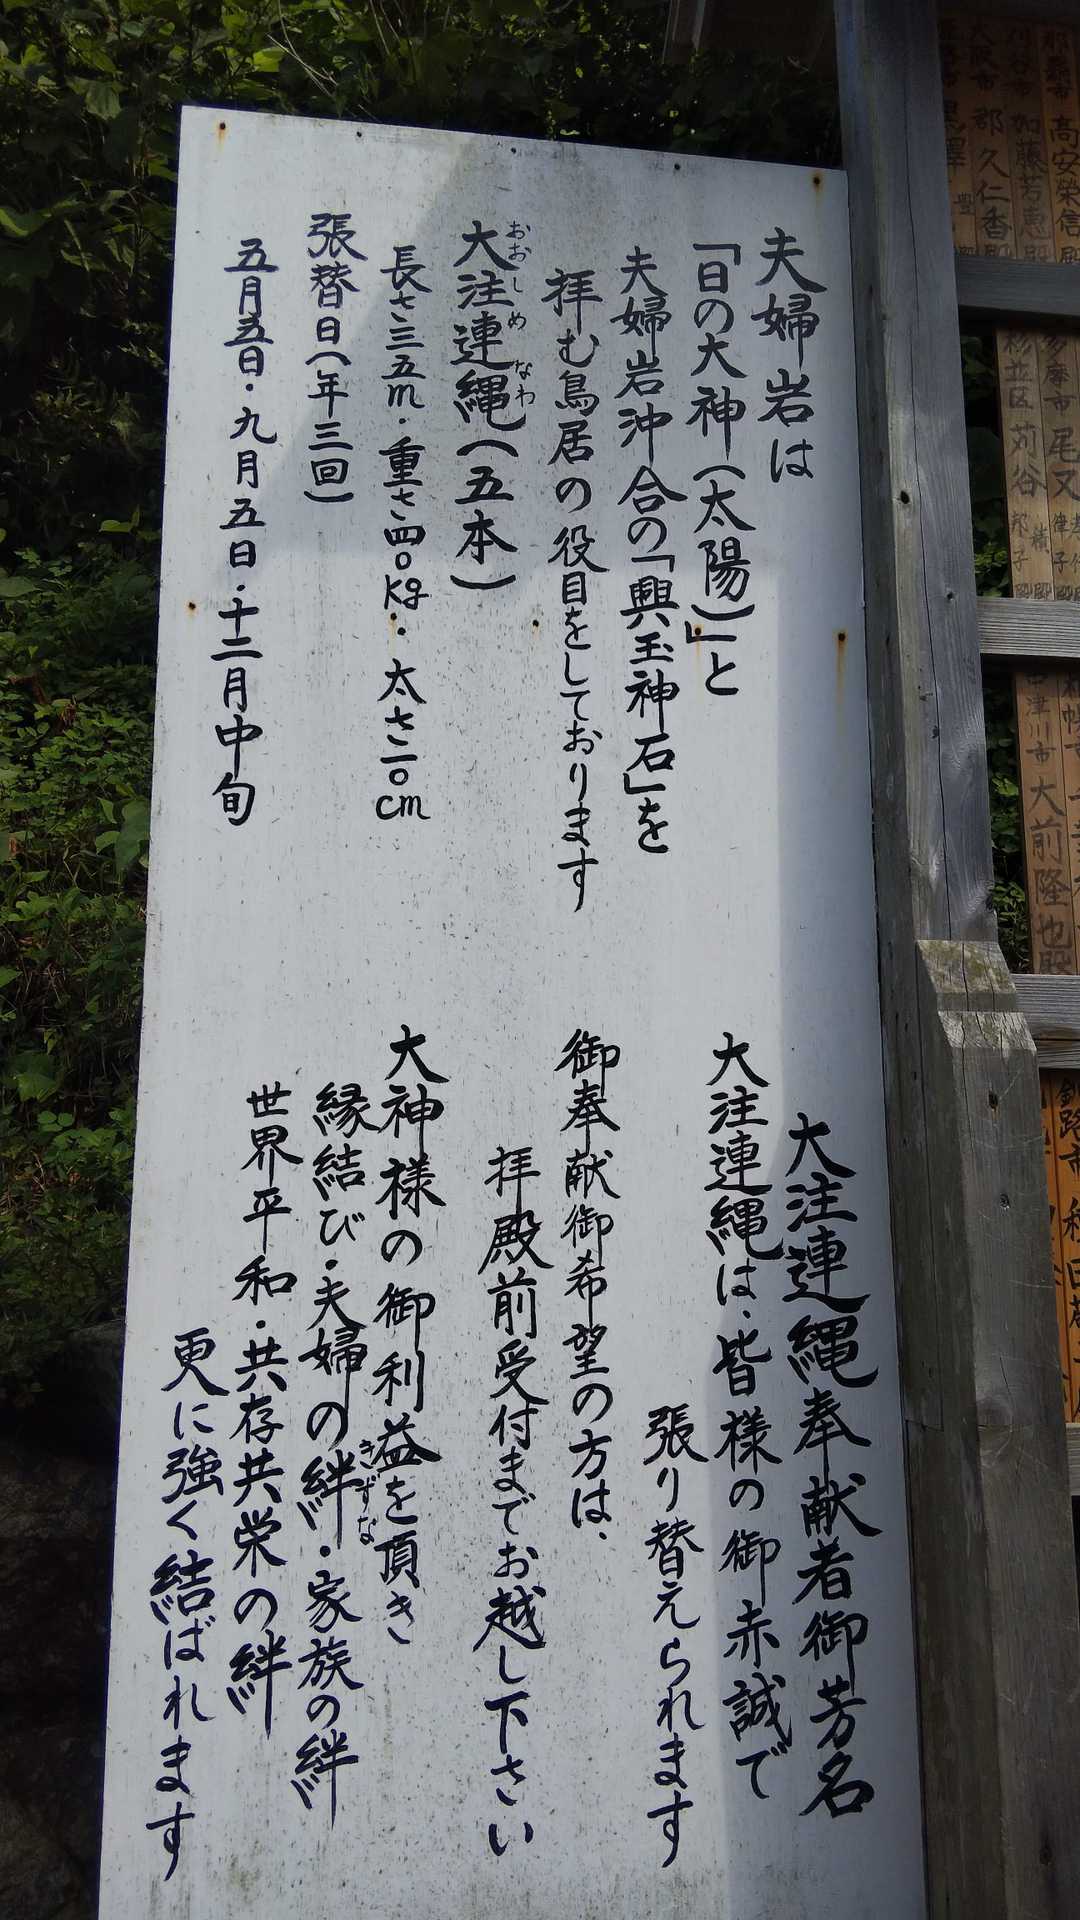 夫婦岩は
「日の大神(太陽)」と
夫婦岩沖合の「興玉神石」を
拝む鳥居の役目をしております
大注連縄(五本)
おおしめなわ
長さ三五m・重さ四〇kg・太さ二〇cm
張替日(年三回)
五月五日・九月五日・十二月中旬
大注連縄奉献者御芳名
大注連縄は、皆様の御赤誠で
張り替えられます
御奉献御希望の方は、
拝殿前受付までお越し下さい
大神様の御利益を頂き
縁結び・夫婦の絆・家族の絆
きずな
世界平和・共存共栄の絆
更に強く結ばれます
高安榮信殿
加藤芳恵殿
大阪市 郡久仁香殿
多摩市 尾又
杉並区 苅谷
邦子
津川市 大前隆也殿
釧路市